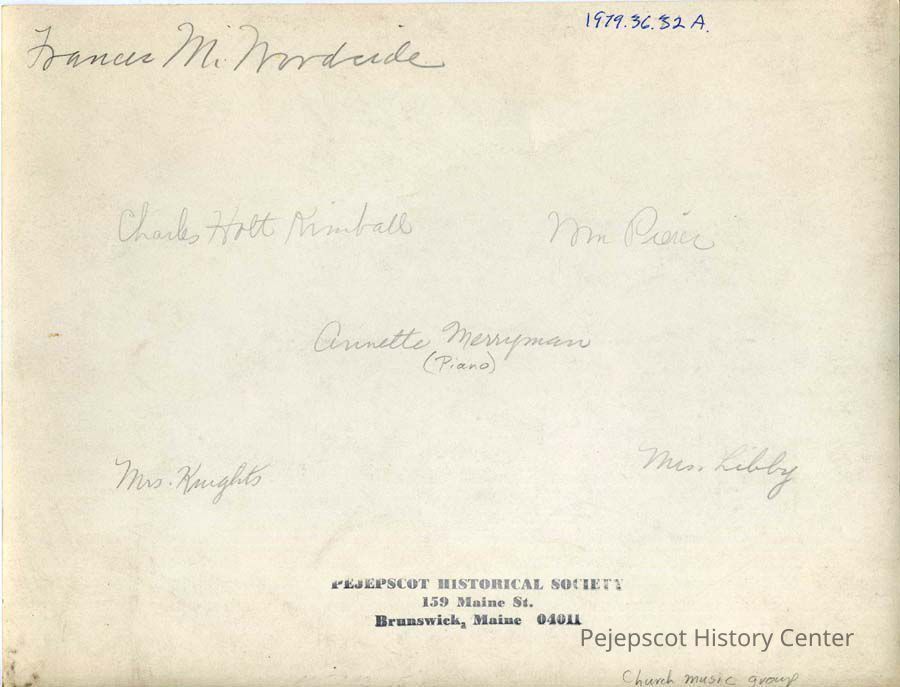 1979.36.32 A.
Frances M. Woodside
Charles Holt Kimball
Wm Pierce
Annette Merryman
(Piano)
Mrs. Knights
Mrs. Libby
PEJEPSCOT HISTORICAL SOCIETY
159 Maine St.
Brunswick, Maine 04011
Pejepscot History Center
Church music group